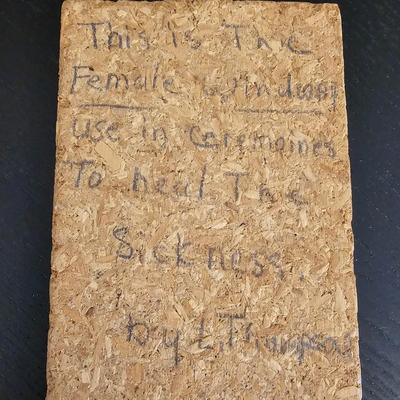 This is The
Female Windway
use in Ceremoines
To heal The
Sickness.
by L. Thompson